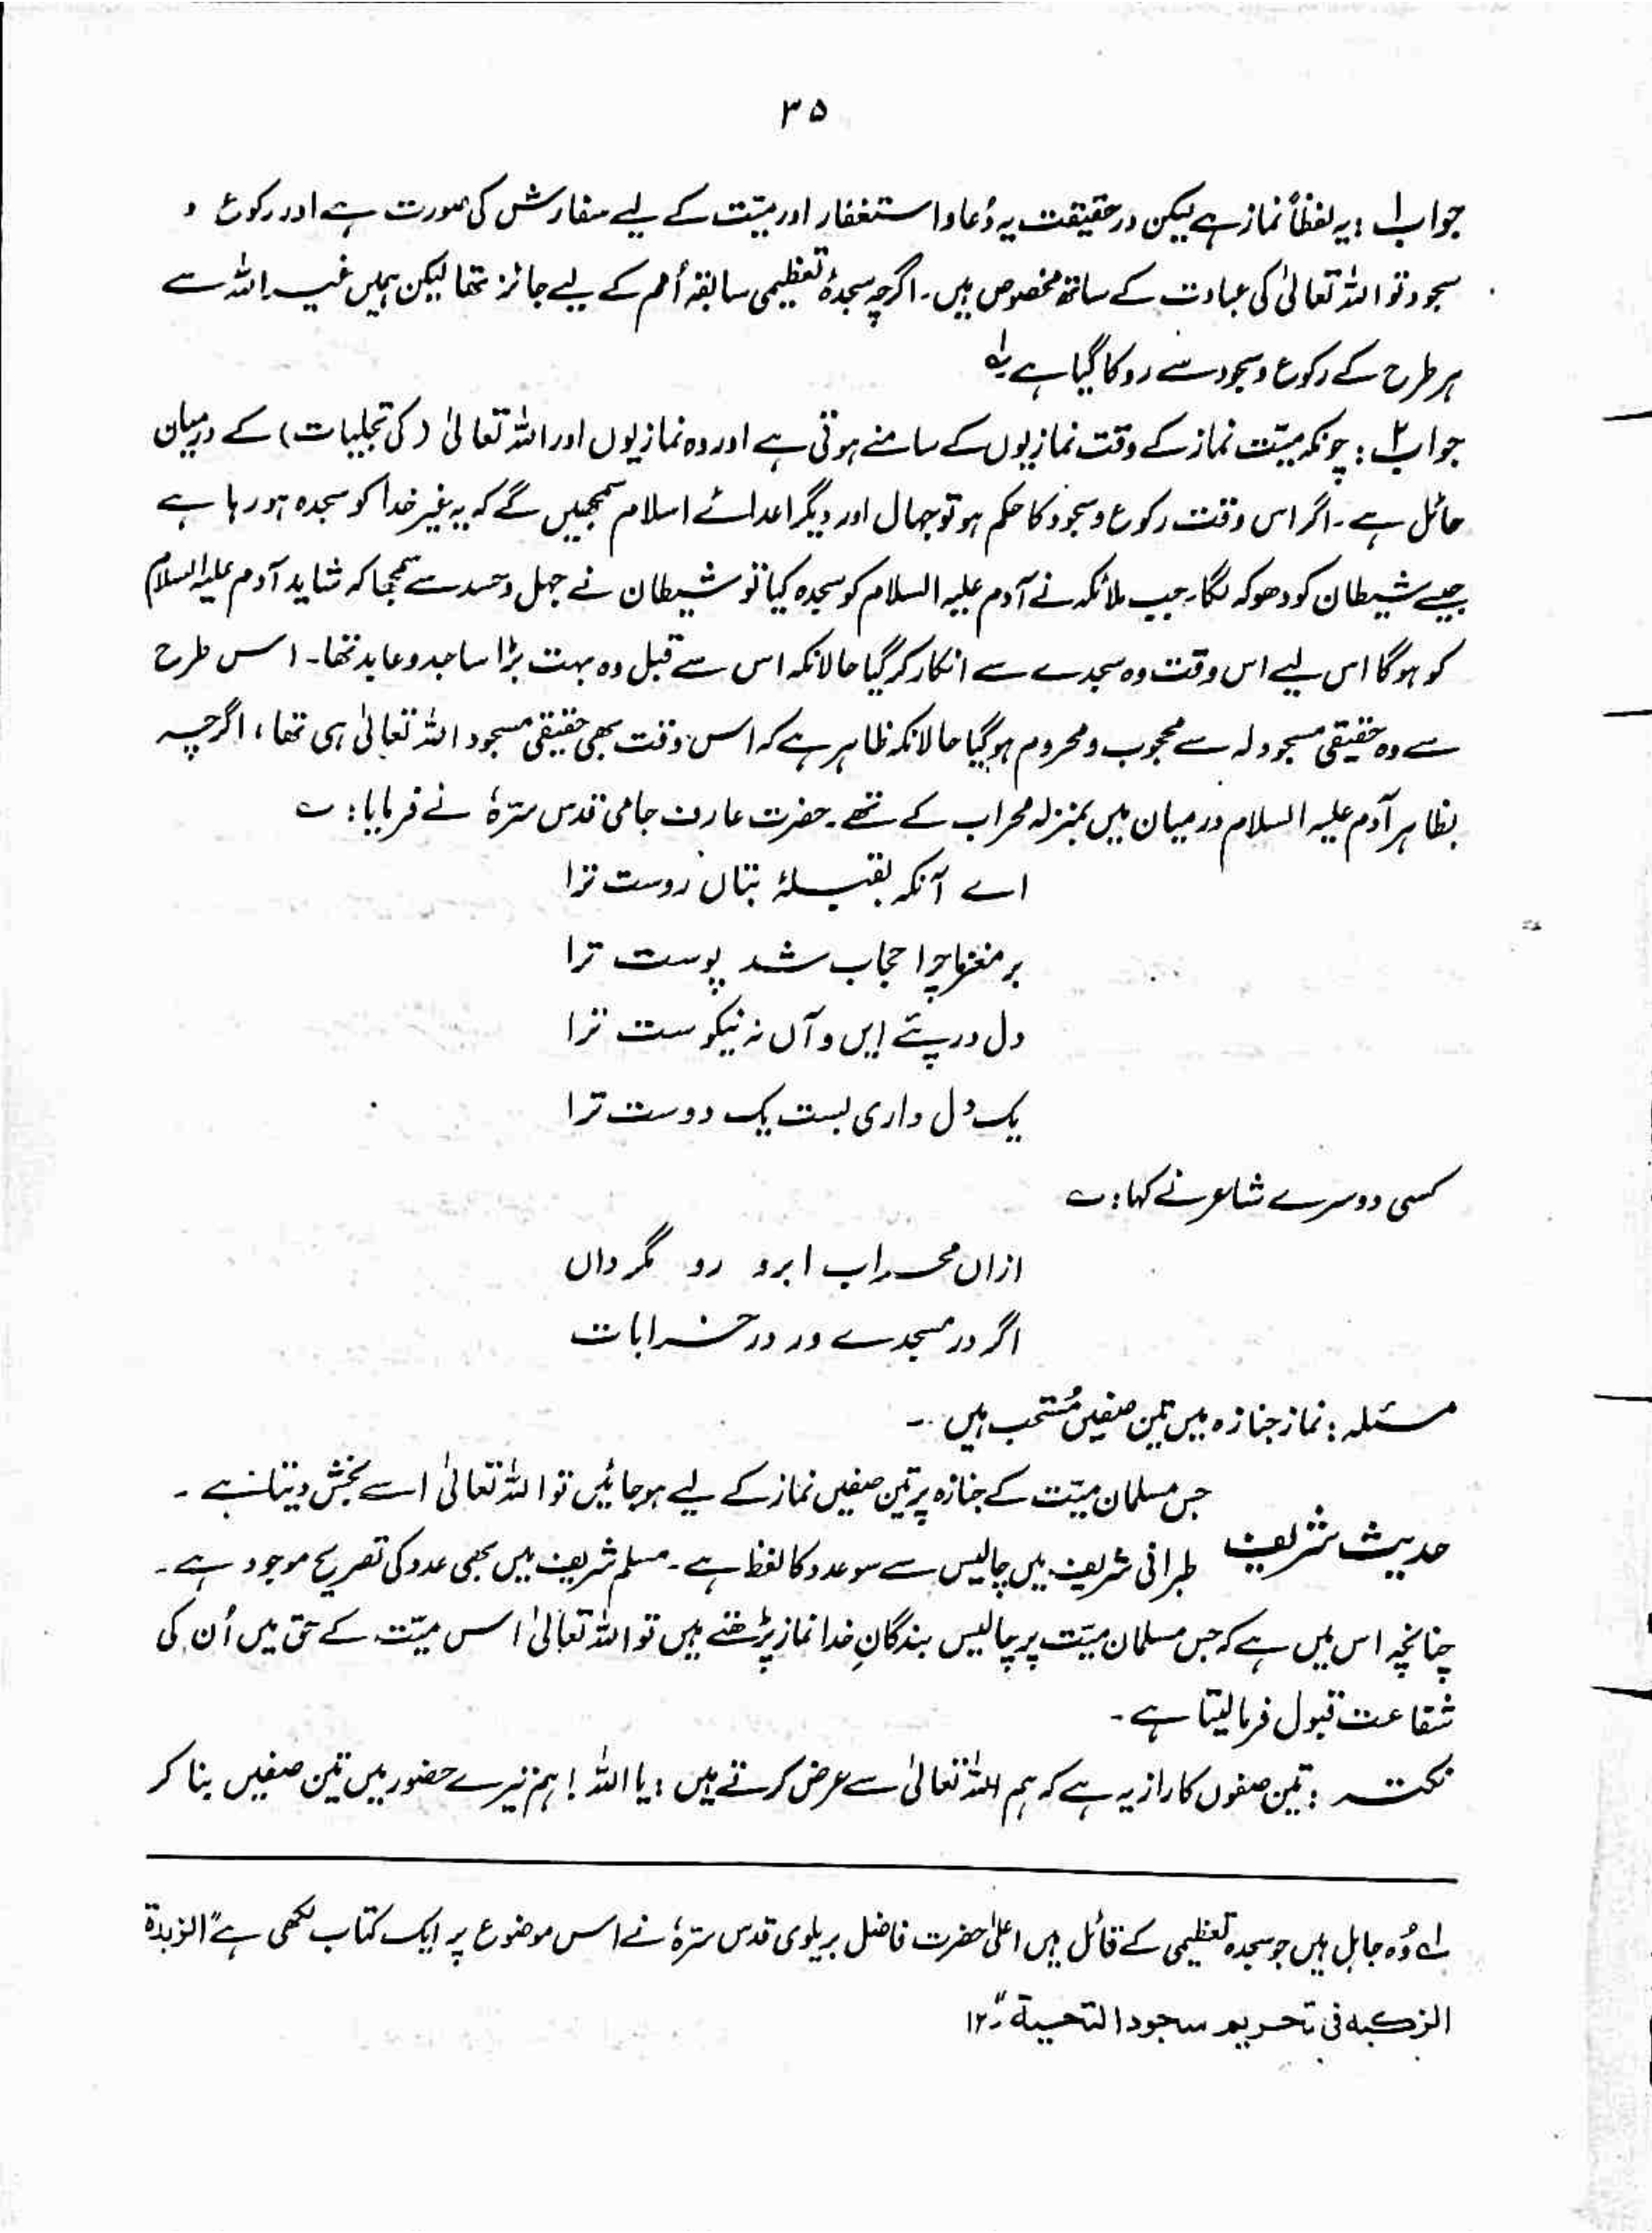 ۳۵
جواب۱ : یہ لفظاً نماز ہے لیکن در حقیقت یہ دُعا و استغفار اور میّت کے لیے سفارش کی صورت ہے اور رکوع و
سجود تو اللہ تعالیٰ کی عبادت کے ساتھ مخصوص ہیں۔ اگرچہ سجدۂ تعظیمی سابقہ اُمم کے لیے جائز تھا لیکن ہمیں غیر اللہ سے
ہر طرح کے رکوع و سجود سے روکا گیا ہے۔۱؎
جواب۲ : چونکہ میّت نماز کے وقت نمازیوں کے سامنے ہوتی ہے اور وہ نمازیوں اور اللہ تعالیٰ (کی تجلیات) کے درمیان
حائل ہے۔ اگر اس وقت رکوع و سجود کا حکم ہو تو جہال اور دیگر اعدائے اسلام سمجھیں گے کہ یہ غیر خدا کو سجدہ ہو رہا ہے
جیسے شیطان کو دھوکہ لگا۔ جب ملائکہ نے آدم علیہ السلام کو سجدہ کیا تو شیطان نے جہل و حسد سے سمجھا کہ شاید آدم علیہ السلام
کو ہوگا اس لیے اس وقت وہ سجدے سے انکار کر گیا حالانکہ اس سے قبل وہ بہت بڑا ساجد و عابد تھا۔ اس طرح
سے وہ حقیقی مسجود لہ سے محجوب و محروم ہو گیا حالانکہ ظاہر ہے کہ اس وقت بھی حقیقی مسجود اللہ تعالیٰ ہی تھا، اگرچہ
بظاہر آدم علیہ السلام درمیان میں بمنزلہ محراب کے تھے۔ حضرت عارف جامی قدس سرّہٗ نے فرمایا: ؎
اے آنکہ بقبلۂ بتاں روست ترا
بر مغز چرا حجاب شد پوست ترا
دل در پئے ایں و آں نہ نیکوست ترا
یک دل داری بست یک دوست ترا
کسی دوسرے شاعر نے کہا: ؎
ازاں محراب ابرو رو مگرداں
اگر در مسجدے ور در خرابات
مسئلہ : نماز جنازہ میں تین صفیں مُستحب ہیں۔
جس مسلمان میّت کے جنازہ پر تین صفیں نماز کے لیے ہو جائیں تو اللہ تعالیٰ اسے بخش دیتا ہے۔
حدیث شریف طبرانی شریف میں چالیس سے سو عدد کا لفظ ہے۔ مسلم شریف میں بھی عدد کی تصریح موجود ہے۔
چنانچہ اس میں ہے کہ جس مسلمان میّت پر چالیس بندگانِ خدا نماز پڑھتے ہیں تو اللہ تعالیٰ اس میّت کے حق میں اُن کی
شفاعت قبول فرما لیتا ہے۔
نکتہ : تین صفوں کا راز یہ ہے کہ ہم اللہ تعالیٰ سے عرض کرتے ہیں : یا اللہ ! ہم تیرے حضور میں تین صفیں بنا کر
۱؎ وُہ جاہل ہیں جو سجدہ تعظیمی کے قائل ہیں اعلیٰ حضرت فاضل بریلوی قدس سرّہٗ نے اس موضوع پر ایک کتاب لکھی ہے "الزبدۃ
الزکیہ فی تحریم سجود التحیۃ"۔ ۱۲